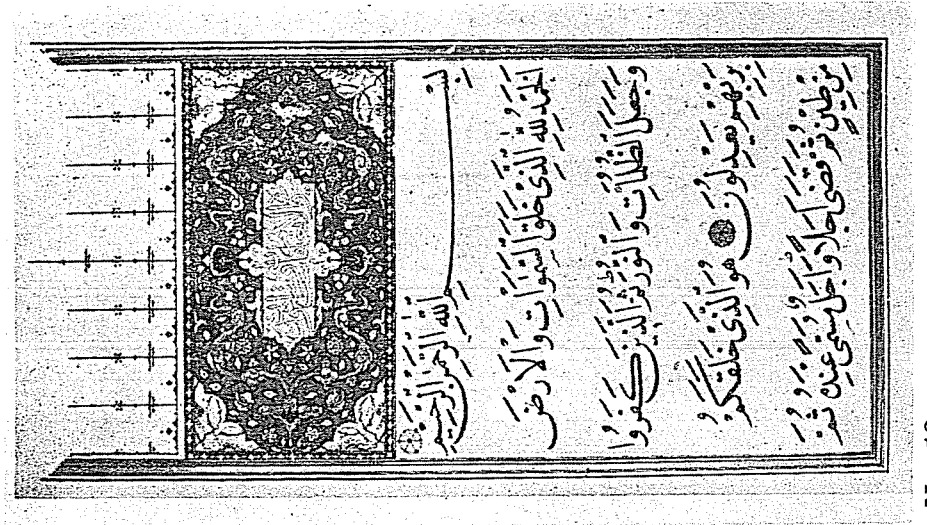 بِسْمِ اللهِ الرَّحْمٰنِ الرَّحِيمِ
اَلْحَمْدُ لِلّٰهِ الَّذِى خَلَقَ السَّمٰوَاتِ وَالْاَرْضَ
وَجَعَلَ الظُّلُمَاتِ وَالنُّورَ ثُمَّ الَّذِينَ كَفَرُوا
بِرَبِّهِمْ يَعْدِلُونَ هُوَ الَّذِى خَلَقَكُمْ
مِنْ طِينٍ ثُمَّ قَضٰى اَجَلًا وَاَجَلٌ مُسَمًّى عِنْدَهُ ثُمَّ